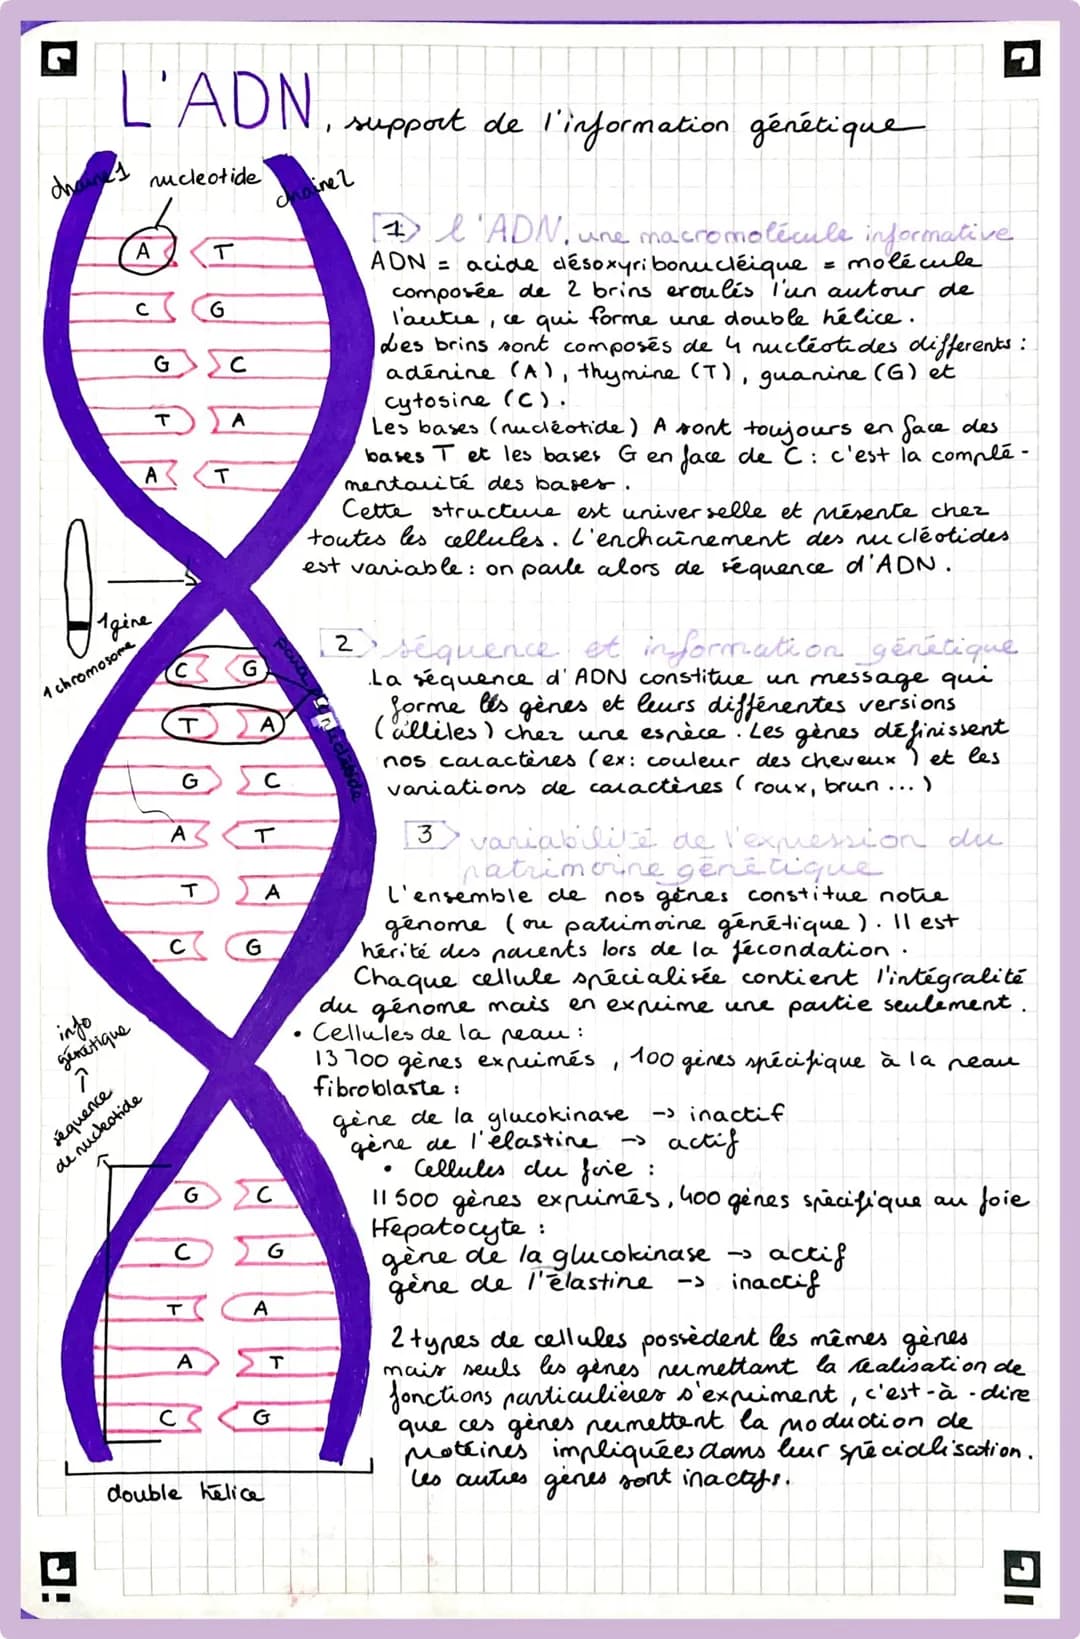 L'ADN, support de l'information génétique
chaine 1
nucleotide
chaine 2
A T
C G
G C
T A
A T
1 gène
1 chromosome
C G
T A
G C
A T
T A
C G
info
génétique
↑
séquence
de nucleotide
G C
C G
T A
A T
C G
double hélice
1 l'ADN, une macromolécule informative
ADN = acide désoxyribonucléique = molécule
composée de 2 brins eroulés l'un autour de
l'autre, ce qui forme une double hélice.
Les brins sont composés de 4 nucléotides differents :
adénine (A), thymine (T), guanine (G) et
cytosine (C).
Les bases (nucléotide) A sont toujours en face des
bases T et les bases G en face de C : c'est la complé-
mentarité des bases.
Cette structure est universelle et présente chez
toutes les cellules. L'enchaînement des nucléotides
est variable : on parle alors de séquence d'ADN.
2 séquence et information génétique
La séquence d'ADN constitue un message qui
forme les gènes et leurs différentes versions
(allèles) chez une espèce. Les gènes définissent
nos caractères (ex: couleur des cheveux) et les
variations de caractères (roux, brun ...)
3 variabilité de l'expression du
patrimoine génétique
L'ensemble de nos gènes constitue notre
génome (ou patrimoine génétique). Il est
hérité des parents lors de la fécondation.
Chaque cellule spécialisée contient l'intégralité
du génome mais en exprime une partie seulement.
• Cellules de la peau :
13 700 gènes exprimés, 100 gènes spécifique à la peau
fibroblaste :
gène de la glucokinase -> inactif
gène de l'élastine -> actif
• Cellules du foie :
11 500 gènes exprimés, 400 gènes spécifique au foie
Hépatocyte :
gène de la glucokinase -> actif
gène de l'élastine -> inactif
2 types de cellules possèdent les mêmes gènes
mais seuls les gènes permettant la réalisation de
fonctions particulières s'expriment, c'est-à-dire
que ces gènes permettent la production de
protéines impliquées dans leur spécialisation.
Les autres gènes sont inactifs.